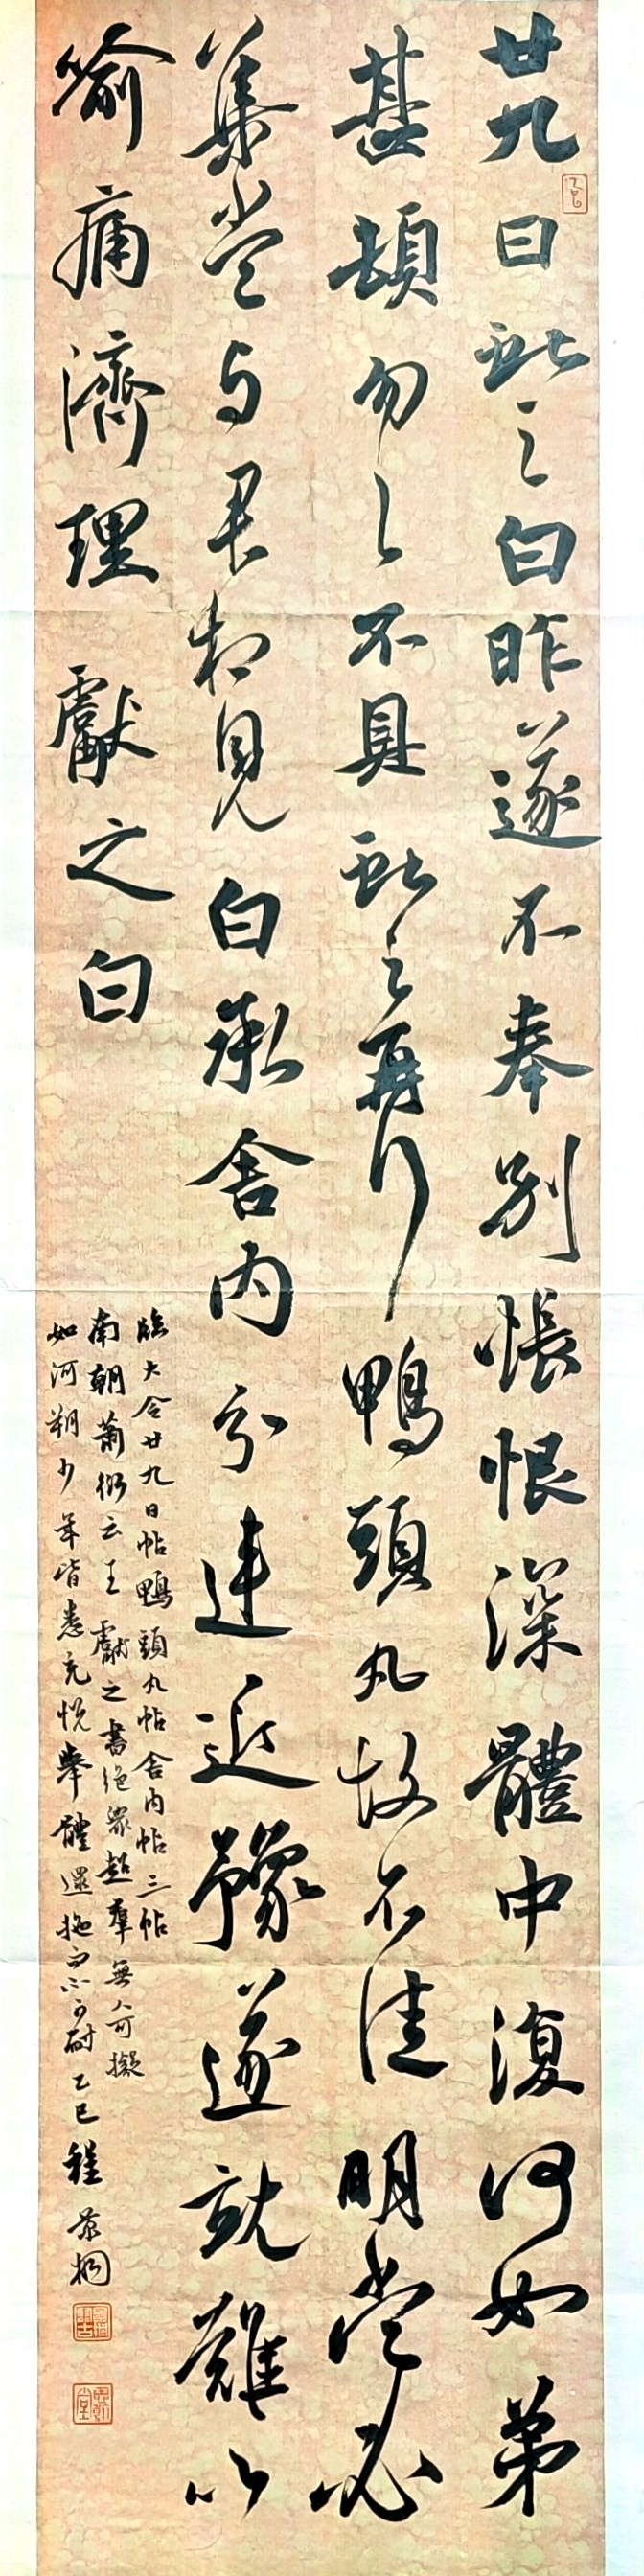 廿九日獻之白昨遂不奉別悵恨深體中復何如弟
甚頓勿勿不具獻之再拜鴨頭丸故不佳明當必
集當与君相見白承舍內分違近豫遂就難以
喻痛濟理獻之白
臨大令廿九日帖鴨頭丸帖舍內帖三帖
南朝蕭衍云王獻之書絕眾超羣無人可擬
如河朔少年皆悉充悅舉體遝拖而不可耐乙巳程景桐